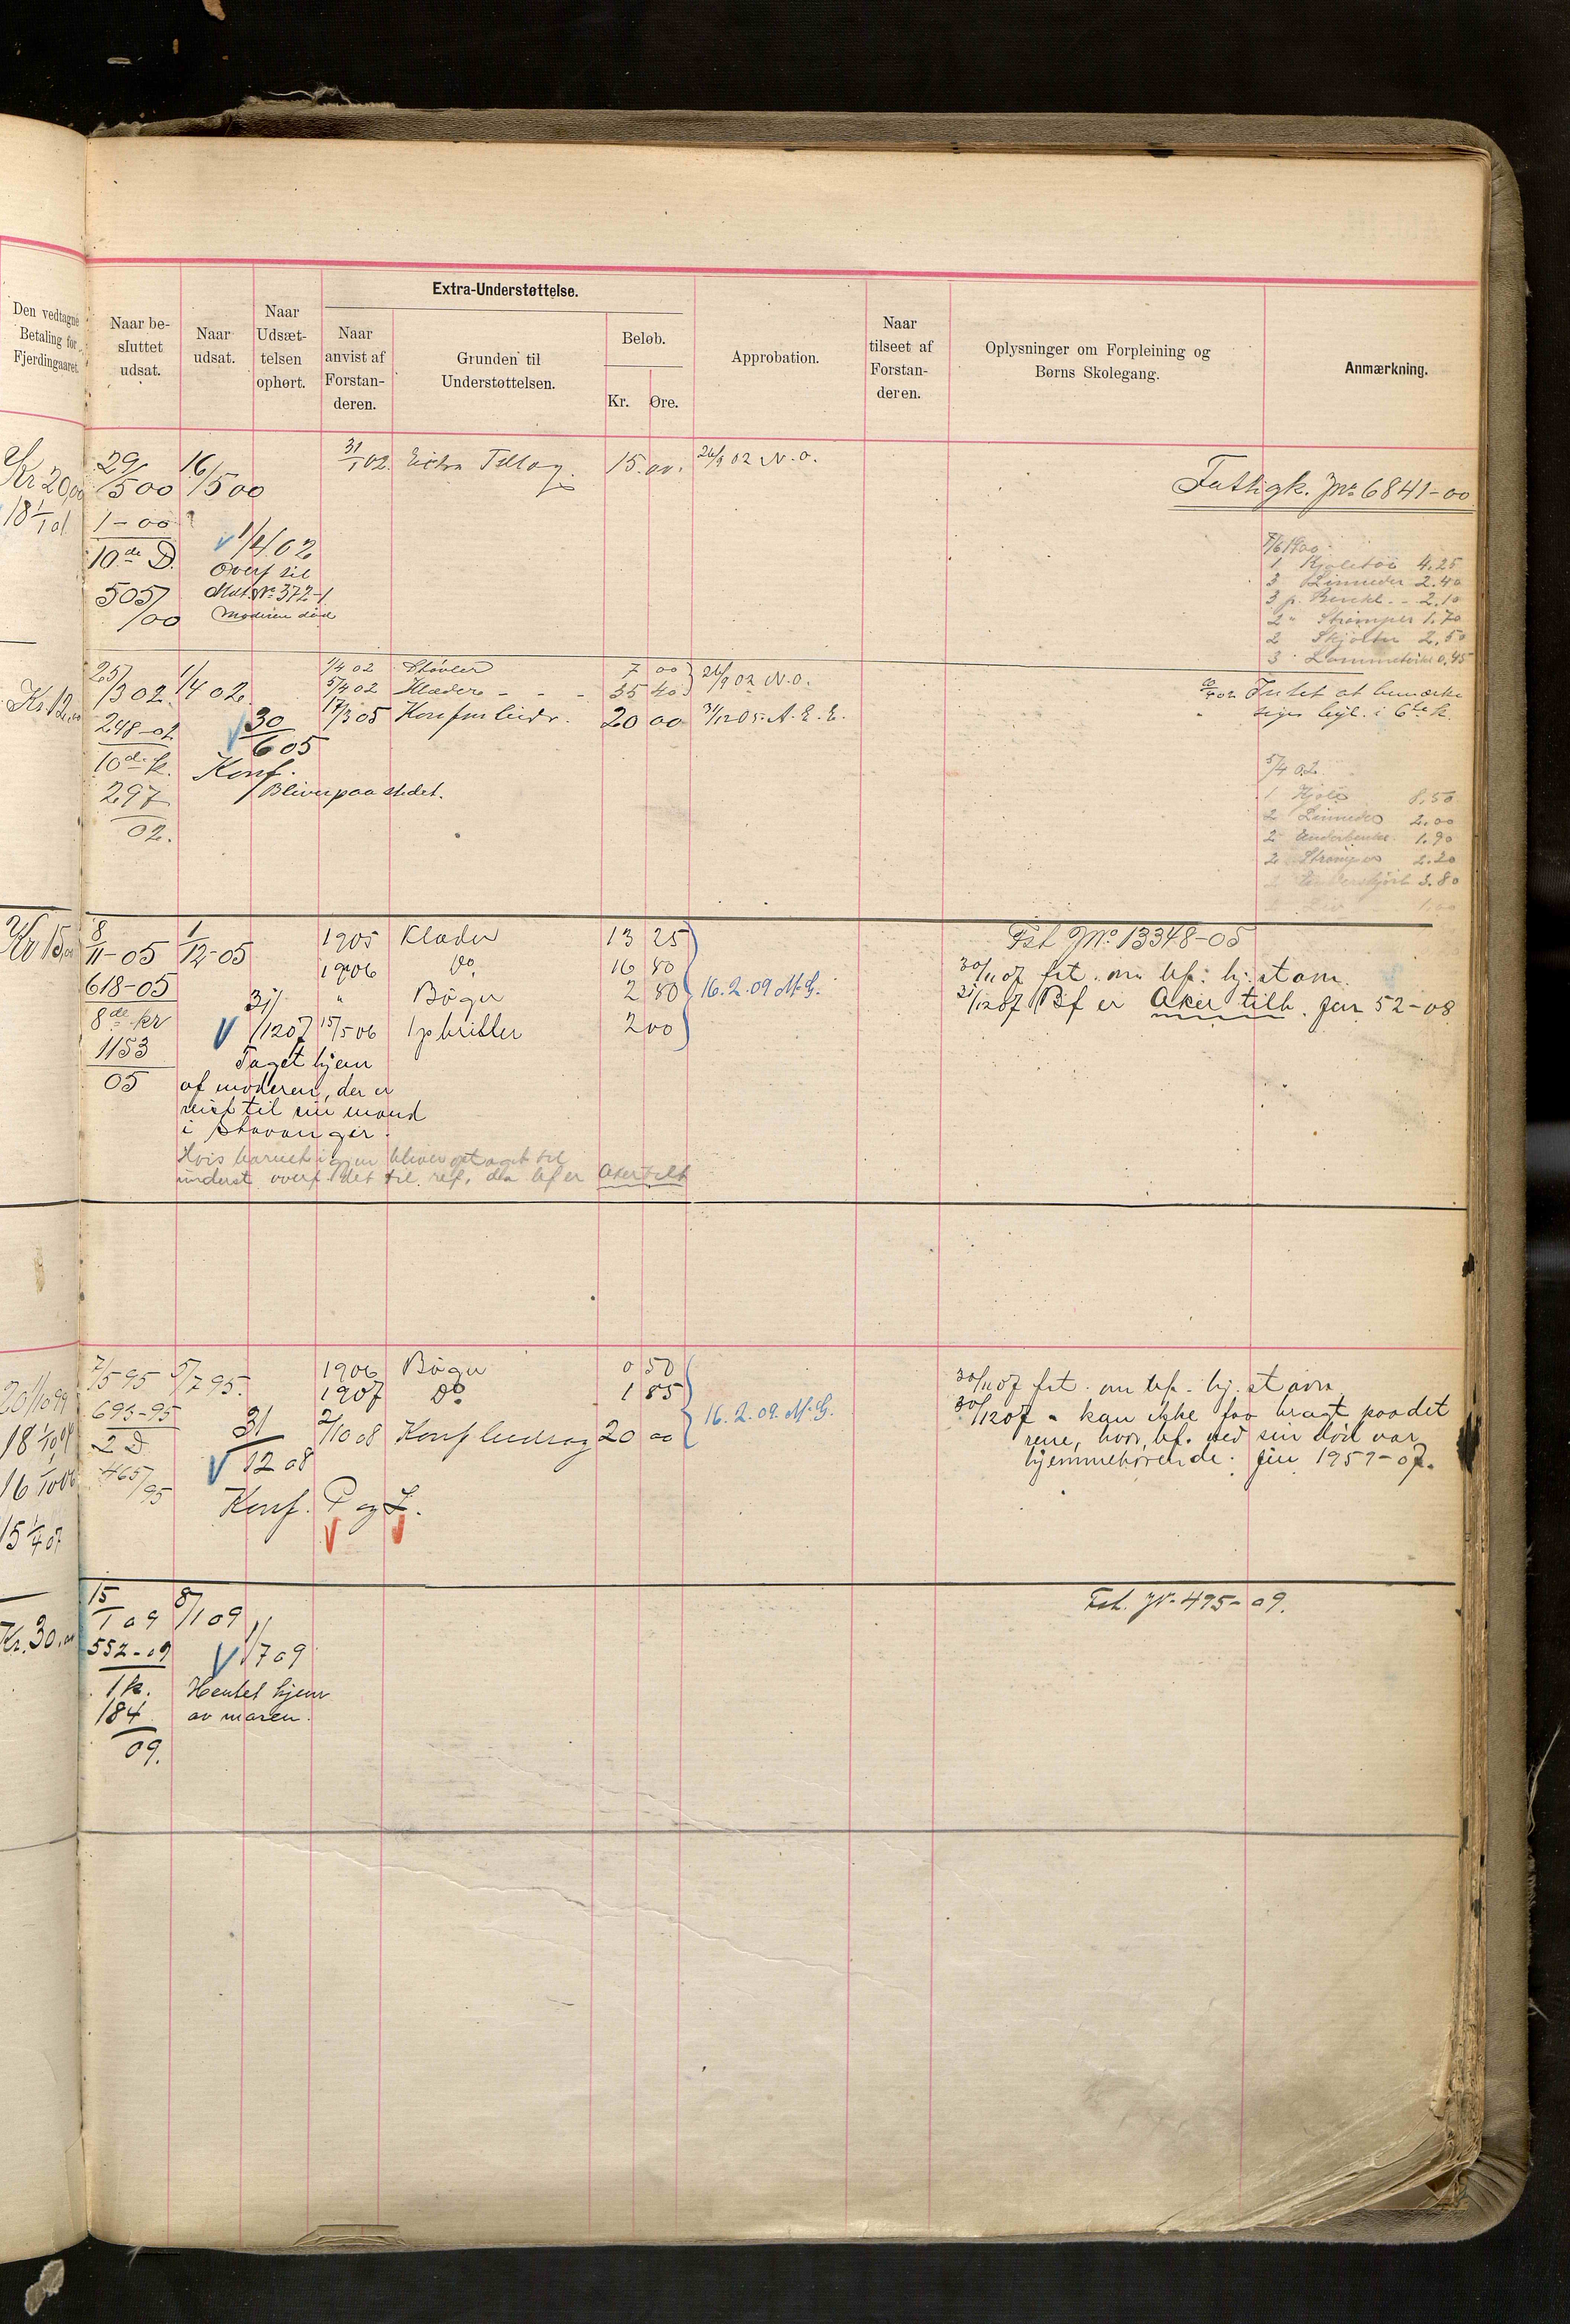 Den vedtagne
Betaling for
Fjerdingaaret.
Naar be-
sluttet
udsat.
Naar
udsat.
Naar
Udsæt-
telsen
ophørt.
Extra-Understøttelse.
Naar
anvist af
Forstan-
deren.
Grunden til
Understøttelsen.
Beløb.
Kr.
Øre.
Approbation.
Naar
tilseet af
Forstan-
deren.
Oplysninger om Forpleining og
Børns Skolegang.
Anmærkning.
Kr 20,00
29/5 00 16/5 00
31/1 02. Extra Tillæg 15.00. 26/9 02 N.O.
Fattigk. JNo 6841-00
18 1/1 01
1-00
10de D.
505/00
1/4 02
Overf til
Mdt. No 372-1
Moderen död
7/6 1900
1 Kjoletøi 4.25
3 Linneder 2.40
3 p. Benkl. - 2.10
2 " Strømper 1.70
2 Skjorter 2.50
3 Lommetørkl 0.45
Kr. 12,00
25/3 02. 1/4 02.
1/4 02 Støvler 7 00
5/4 02 Klæder - - - 35 40 26/9 02 N.O.
17/3 05 Konf.bidr. 20 00 31/12 05. A.E.E.
Intet at bemærke
i 6te k.
248-02
10de k.
297
02.
30/6 05
Konf.
Bliver paa stedet.
5/4 02
1 Kjole 8,50
2 Linneder 2.00
2 Underbenkl. 1.90
2 Strømper 2.20
3.80
2 Liv 1.00
Kr 15,00
8/11-05 1/12-05
1905 Klæder 13 25
1906 Do. 16 80
" Böger 2 80
15/5 06 1 p briller 2 00
16.2.09 M.G.
Fst JNo 13348-05
30/11 07 fst. om bf: hj. stavn.
31/12 07 Bf er Aker tilh. Jnr 52-08
618-05
8de kr
1153
05
31/12 07
Taget hjem
af moderen, der er
reist til sin mand
i Stavanger.
Hvis barnet igjen bliver optaget til
underst. overf. det til ref, da bf er Aker tilh
20 1/10 99
18 1/10 01
16 1/10 06
15 1/4 07
7/5 95 5/7 95.
693-95
2 D
465/95
1906 Böger 0 50
1907 Do 1 85
2/10 08 Konf bidrag 20 00
16.2.09. M.G.
31/12 08
Konf. P og L.
30/11 07 fst. om bf. hj. stavn
30/12 07 " kan ikke faa bragt paa det
rene, hvor bf. ved sin död var
hjemmehörende. Jnr 1957-07.
Kr. 30,00
15/1 09 8/1 09
552-09
1 k.
184
09.
1/7 09
Hentet hjem
av moren.
Fst. JN. 495-09.